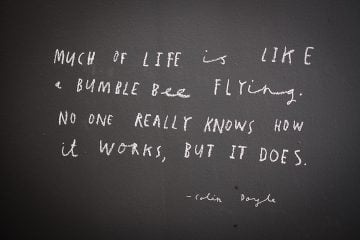 MUCH OF LIFE is LIKE
a BUMBLE Bee FLYing.
NO ONE REALLY KNOWS HOW
it WORKS, BUT IT DOES.
-Colin Doyle